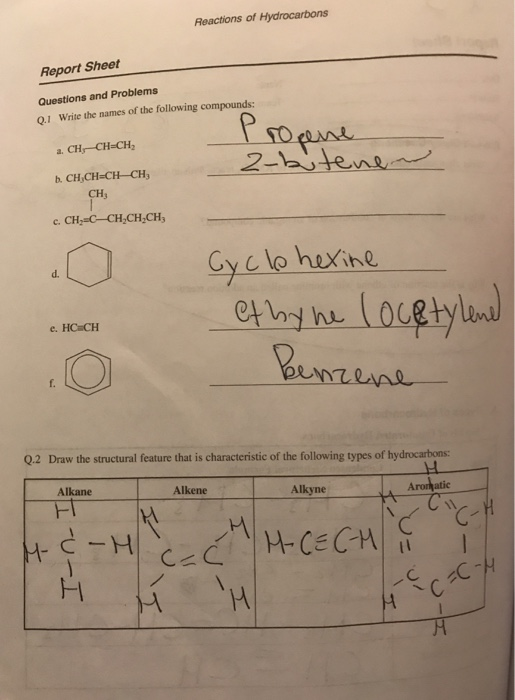 Reactions of Hydrocarbons
Report Sheet
Questions and Problems
Q.1 Write the names of the following compounds:
a. CH₃—CH=CH₂ Propene
b. CH₃CH=CH—CH₃ 2-butene
CH₃
c. CH₂=C—CH₂CH₂CH₃
d. Cyclohexine
e. HC≡CH ethyne (ocetylene)
f. Benzene
Q.2 Draw the structural feature that is characteristic of the following types of hydrocarbons:
Alkane Alkene Alkyne Aromatic
H H H H H
H-C-H C=C H-C≡C-H C C C-H
H H H H C C C-H
H